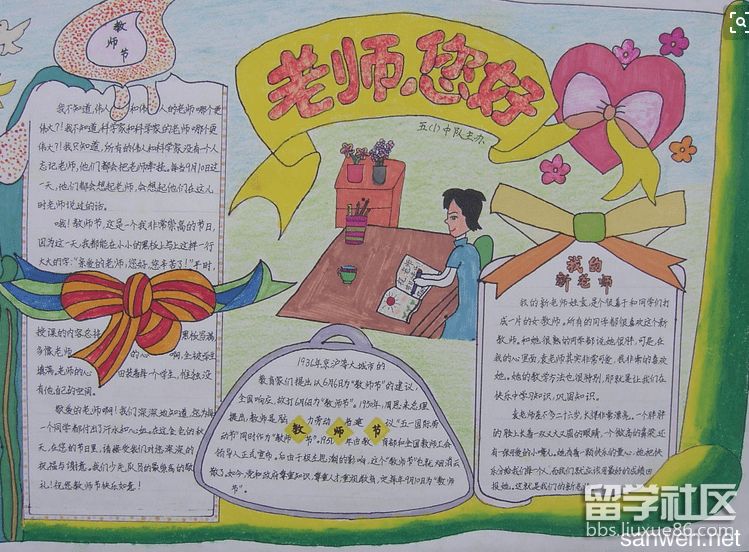 教
师节
老师,您好
五(1)中队主办
我不知道,伟人和伟人的老师哪个更
伟大?我不知道,科学家和科学家的老师哪个更
伟大?我只知道,所有的伟人和科学家没有一个人
忘记老师,他们都会把老师牵挂。每当9月10日这
一天,他们都会想起老师,会想起他们在这儿
时老师说过的话。
哦!教师节,这是一个我非常崇高的节日,
因为这一天,我都能在小小的黑板上写上这样一行
大大的字:“亲爱的老师,您好,您辛苦了!”平时,
授课的内容总将黑板写满,
多像老师的心啊,全被学生
填满。老师的心田装着每个学生,惟独没
有他自己的空间。
敬爱的老师啊!我们深深地知道,您为每
一个同学都付出了汗水和心血。在这金色的秋
天,在您的节日里,请接受我们对您深深的
祝福与情意。我们少先队员的最崇高的敬
礼!祝您教师节快乐如意!
1931年京沪等大城市的
教育家们提出从6月6日为“教师节”的建议,
全国响应,故订6月6日为“教师节”。1950年,周恩来总理
提出,教师是脑力劳动者,建议以“五一国际劳
动节”同时作为“教师节”。1951年由教育部和全国教师工会
领导人正式宣布。后由于极左思潮的影响,这个“教师节”也就烟消云
散了。如今,党和政府尊重知识,尊重人才,重视教育,定每年9月10日为“教师
节”。
教 师 节
我的
新老师
我的新老师姓袁,是个很善于和同学们打
成一片的女教师。所有的同学都很喜欢这个新
教师。和她很熟的同学都说她很胖,可是,在
我的心里面,袁老师其实非常可爱,我非常的喜欢
她。她的教学方法也很特别,那就是让我们在
快乐中学习知识,巩固知识。
袁老师差不多二十六岁,长得非常漂亮。一个胖胖
的脸上长着一双大大又圆的眼睛,一个微高的鼻梁还
有一张可爱的小嘴儿。她有着一颗快乐的童心,她把快
乐分给我们每一个人,而我们就应该用最好的成绩回
报她。这就是我们的新老师
留学社区
bbs.liuxue86.com
sanwen.net